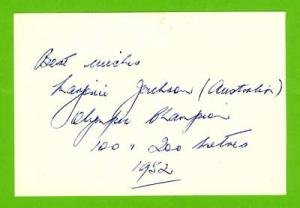 Best wishes
Marjorie Jackson (Australia)
Olympic Champion
100 & 200 metres
1952